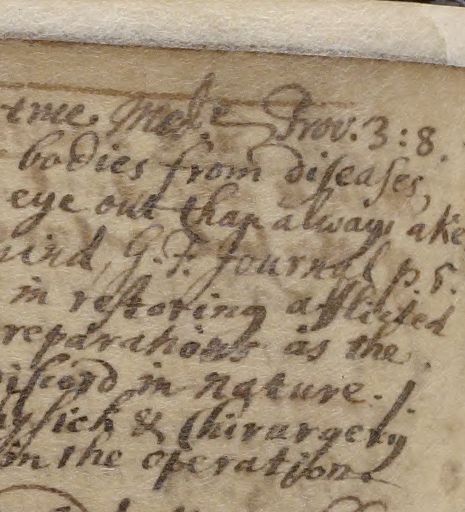 true. Med.e Prov. 3:8.
bodies from diseases,
eye out than always ake
mind, G.F. Journal p. 5.
in restoring afflicted
reparations as the
discord in nature.
hysick & Chirurgery
in the operation.